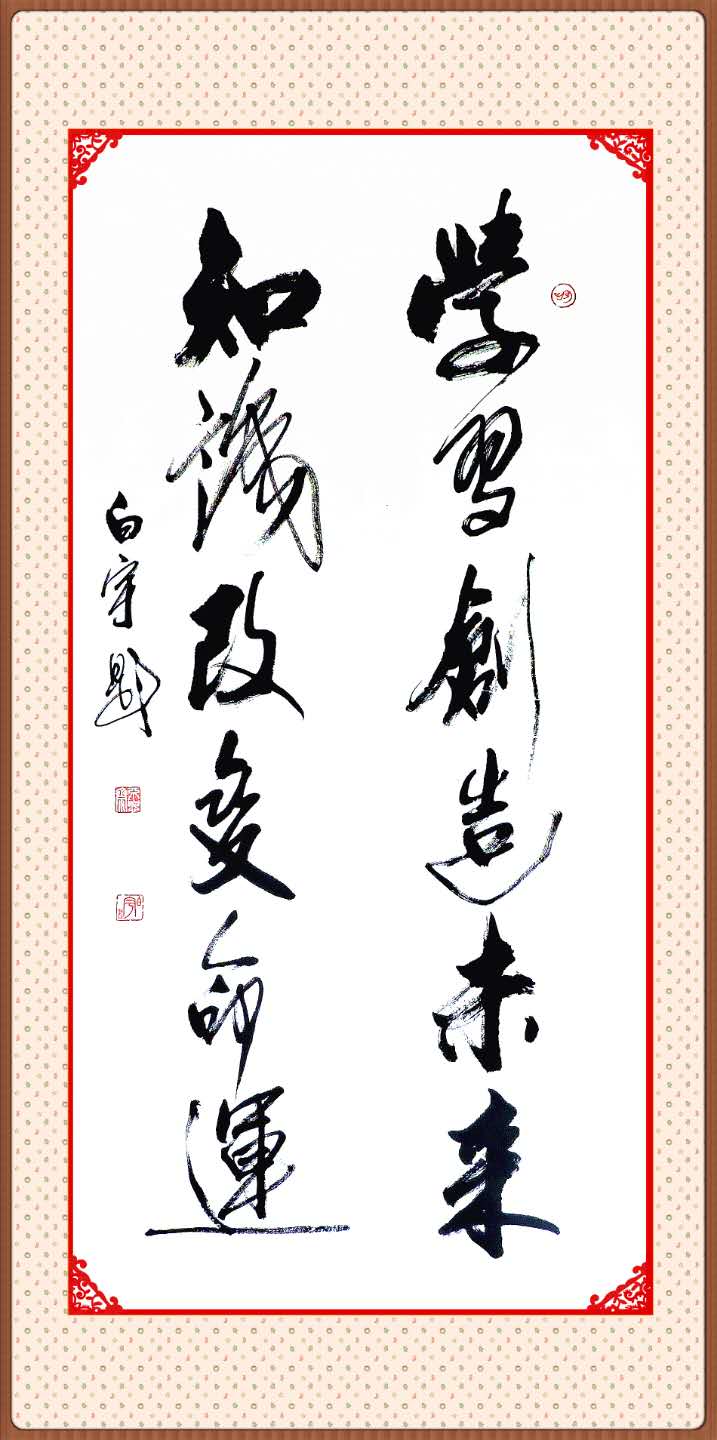 學習創造未来
知識改变命運
白宇